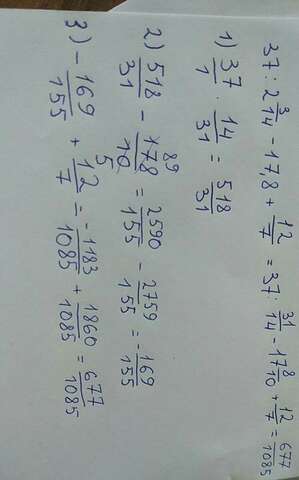 37 : 2 3/14 - 17,8 + 12/7 = 37 : 31/14 - 17 8/10 + 12/7 = 677/1085
1) 37/1 · 14/31 = 518/31
2) 518/31 - 178 89/10 5 = 2590/155 - 2759/155 = -169/155
3) - 169/155 + 12/7 = -1183/1085 + 1860/1085 = 677/1085